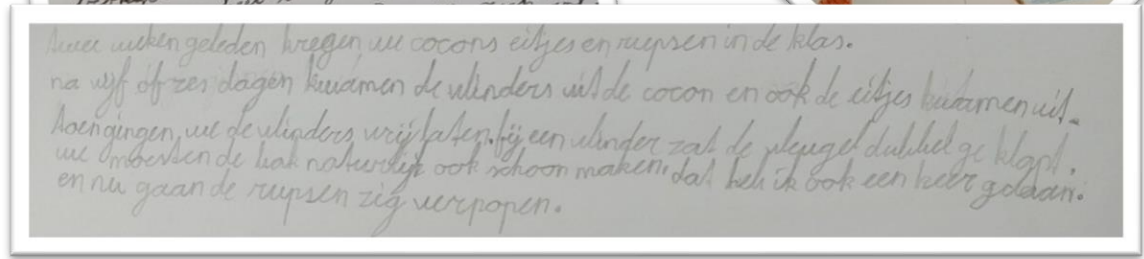 twee weken geleden kregen we cocons eitjes en rupsen in de klas.
na vijf of zes dagen kwamen de vlinders uit de cocon en ook de eitjes kwamen uit.
toen gingen we de vlinders vrij laten. bij een vlinder zat de vleugel dubbel ge klapt.
we moesten de bak natuurlijk ook schoon maken. dat heb ik ook een keer gedaan.
en nu gaan de rupsen zig verpopen.